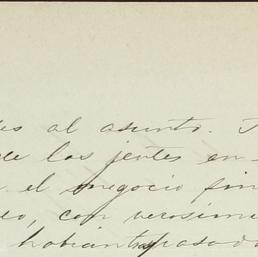 al asunto.
de las jentes en-
el negocio fin
con verosimi
habian traspasado